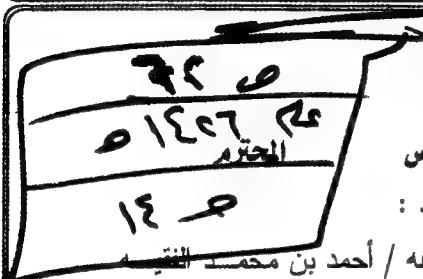 ص ٢٦
عام ١٤٢٦ هـ
المحترم
س
ص ١٤
:
ه / أحمد بن محمد الفقيه